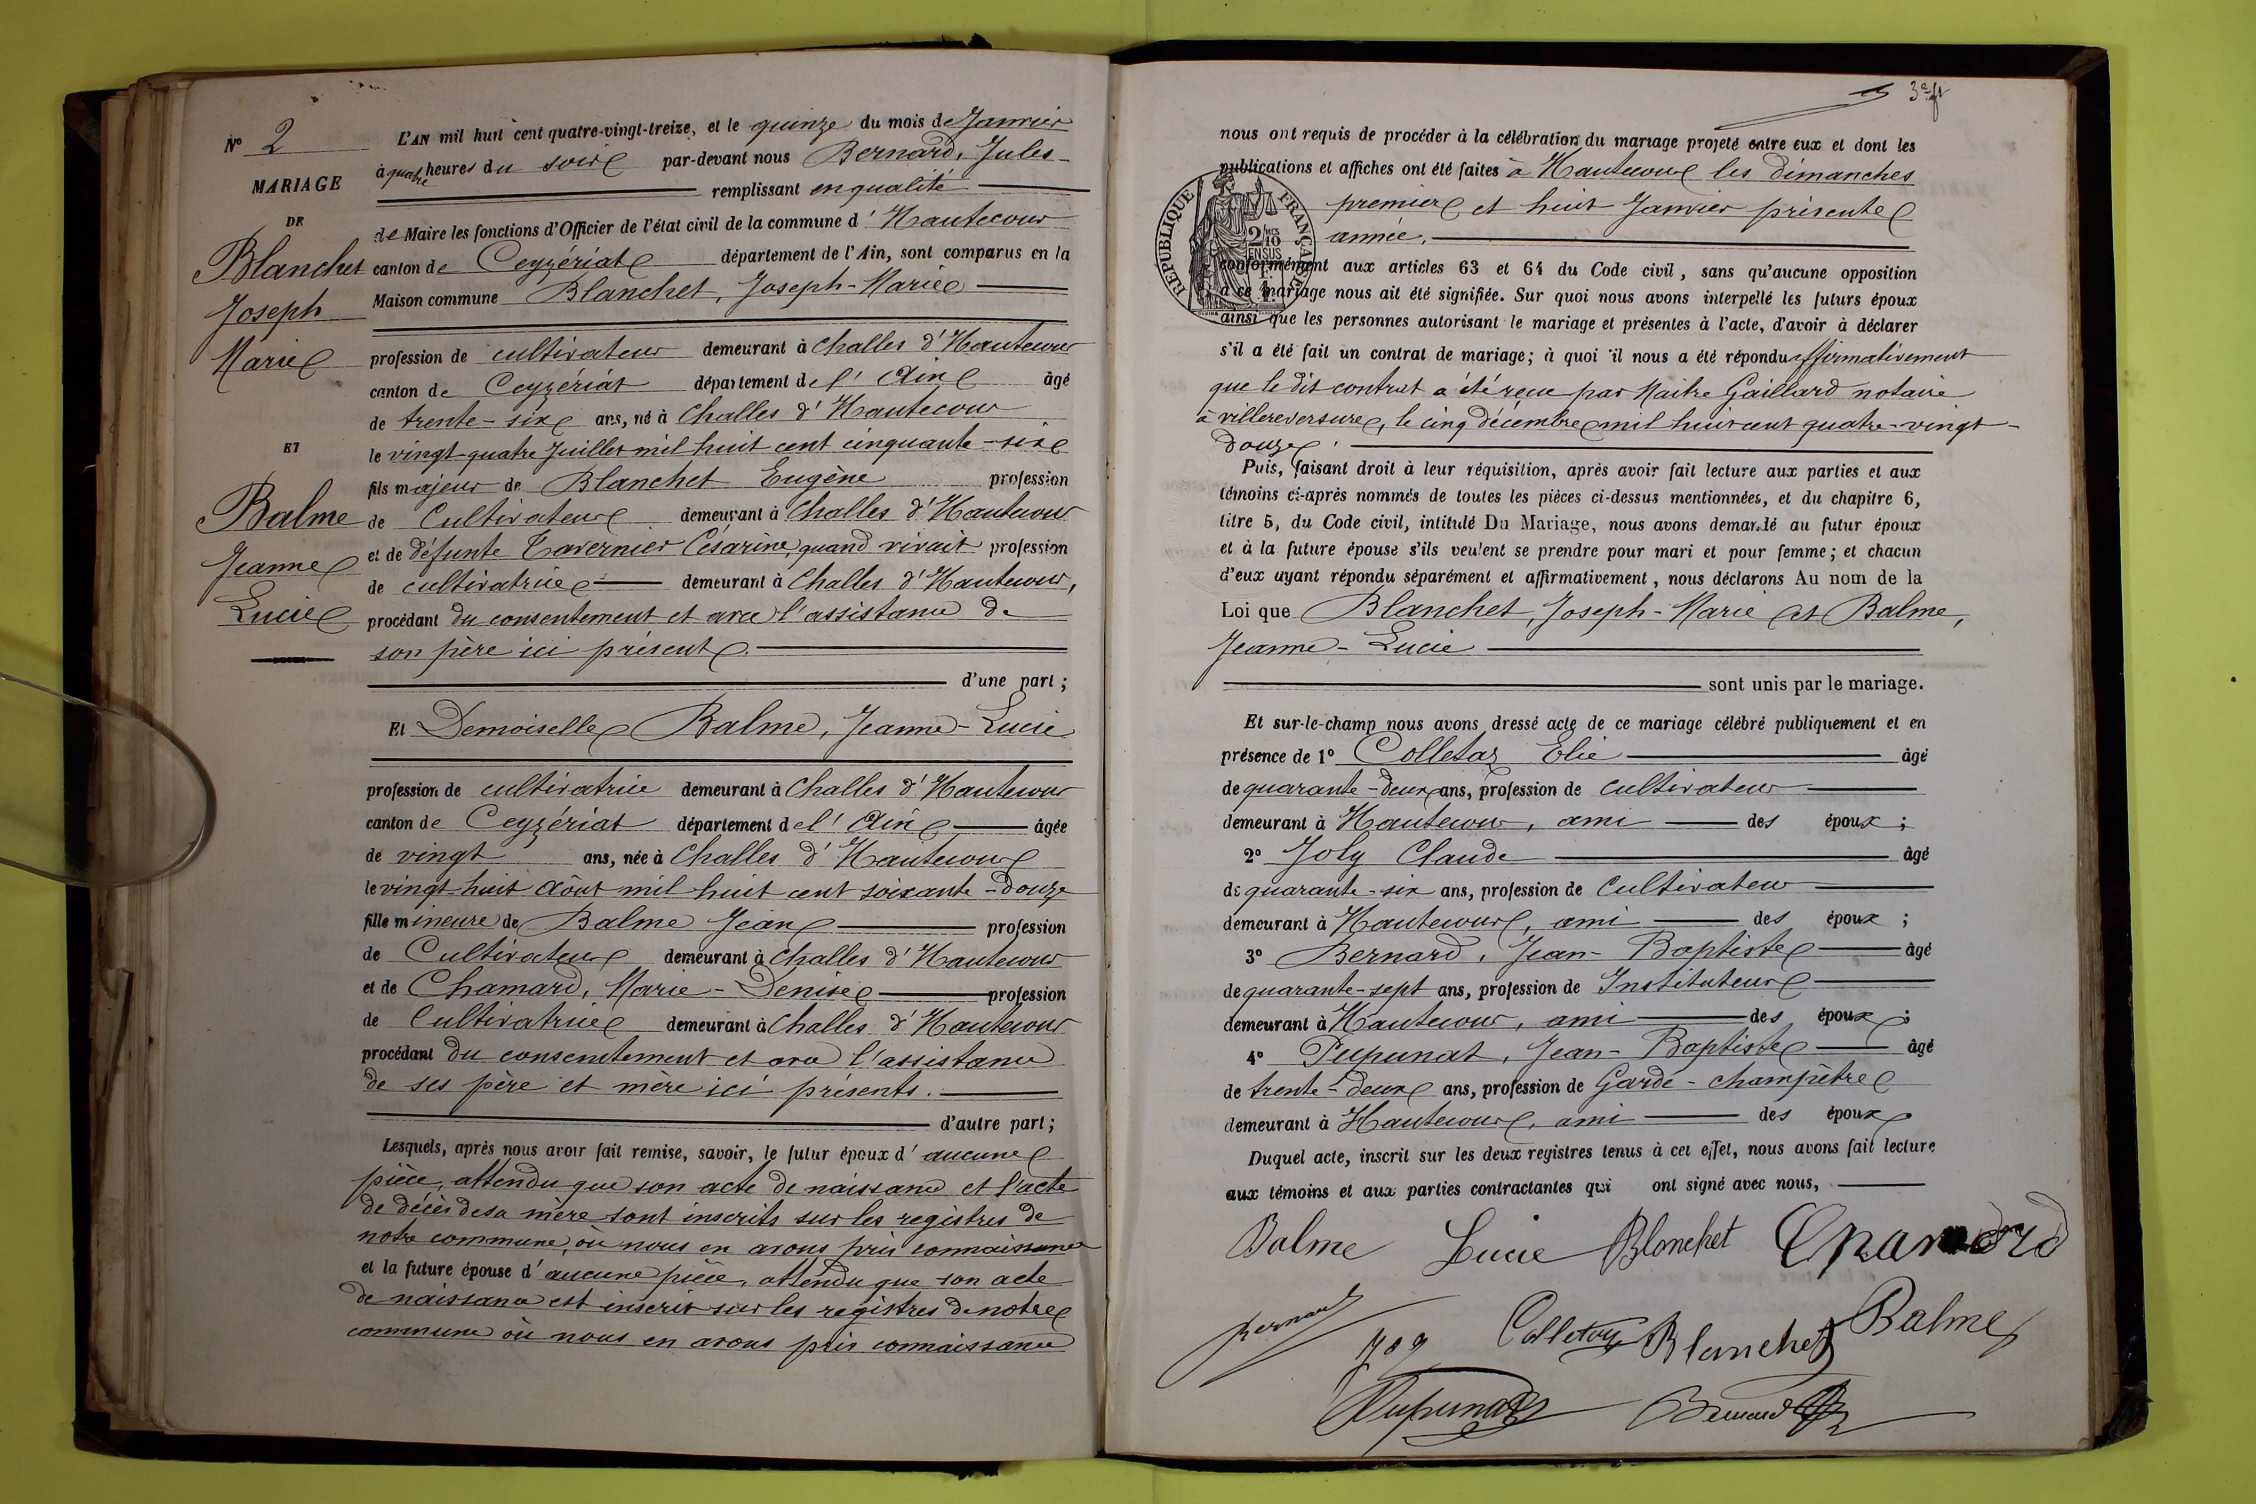 N° 2
MARIAGE
DE
Blanchet
Joseph
Marie
ET
Balme
Jeanne
Lucie
L'AN mil huit cent quatre-vingt-treize, et le quinze du mois de Janvier
à quatre heures du soir par-devant nous Bernard, Jules
remplissant en qualité
de Maire les fonctions d'Officier de l'état civil de la commune d'Hautecour
canton de Ceyzériat département de l'Ain, sont comparus en la
Maison commune Blanchet, Joseph-Marie
profession de cultivateur demeurant à Challes d'Hautecour
canton de Ceyzériat département de l'Ain âgé
de trente-six ans, né à Challes d'Hautecour
le vingt-quatre Juillet mil huit cent cinquante-six
fils majeur de Blanchet Eugène profession
de Cultivateur demeurant à Challes d'Hautecour
et de défunte Tavernier Césarine, quand vivait profession
de cultivatrice demeurant à Challes d'Hautecour,
procédant du consentement et avec l'assistance de
son père ici présent.
d'une part;
Et Demoiselle Balme, Jeanne-Lucie
profession de cultivatrice demeurant à Challes d'Hautecour
canton de Ceyzériat département de l'Ain âgée
de vingt ans, née à Challes d'Hautecour
le vingt-huit Août mil huit cent soixante-douze
fille mineure de Balme Jean profession
de Cultivateur demeurant à Challes d'Hautecour
et de Chamard, Marie-Denise profession
de Cultivatrice demeurant à Challes d'Hautecour
procédant du consentement et avec l'assistance
de ses père et mère ici présents.
d'autre part;
Lesquels, après nous avoir fait remise, savoir, le futur époux d'aucune
pièce, attendu que son acte de naissance et l'acte
de décès de sa mère sont inscrits sur les registres de
notre commune, où nous en avons pris connaissance
et la future épouse d'aucune pièce, attendu que son acte
de naissance est inscrit sur les registres de notre
commune où nous en avons pris connaissance
3e ft
nous ont requis de procéder à la célébration du mariage projeté entre eux et dont les
publications et affiches ont été faites à Hautecour les dimanches
premier et huit Janvier présente
année.
RÉPUBLIQUE FRANÇAISE
2/10 EN SUS
conformément aux articles 63 et 64 du Code civil, sans qu'aucune opposition
à ce mariage nous ait été signifiée. Sur quoi nous avons interpellé les futurs époux
ainsi que les personnes autorisant le mariage et présentes à l'acte, d'avoir à déclarer
s'il a été fait un contrat de mariage; à quoi il nous a été répondu affirmativement
que le dit contrat a été reçu par Maitre Gaillard notaire
à villereversure, le cinq décembre mil huit cent quatre-vingt-
douze.
Puis, faisant droit à leur réquisition, après avoir fait lecture aux parties et aux
témoins ci-après nommés de toutes les pièces ci-dessus mentionnées, et du chapitre 6,
titre 5, du Code civil, intitulé Du Mariage, nous avons demandé au futur époux
et à la future épouse s'ils veulent se prendre pour mari et pour femme; et chacun
d'eux ayant répondu séparément et affirmativement, nous déclarons Au nom de la
Loi que Blanchet, Joseph-Marie et Balme,
Jeanne-Lucie
sont unis par le mariage.
Et sur-le-champ nous avons dressé acte de ce mariage célébré publiquement et en
présence de 1° Colletaz Elie âgé
de quarante-deux ans, profession de cultivateur
demeurant à Hautecour, ami des époux;
2° Joly Claude âgé
de quarante-six ans, profession de Cultivateur
demeurant à Hautecour, ami des époux;
3° Bernard, Jean-Baptiste âgé
de quarante-sept ans, profession de Instituteur
demeurant à Hautecour, ami des époux;
4° Pupunat, Jean-Baptiste âgé
de trente-deux ans, profession de Garde-champêtre
demeurant à Hautecour, ami des époux
Duquel acte, inscrit sur les deux registres tenus à cet effet, nous avons fait lecture
aux témoins et aux parties contractantes qui ont signé avec nous,
Balme Lucie Blanchet Chamard
Bernard Colletaz Blanchet Balme
Pupunat Bernard